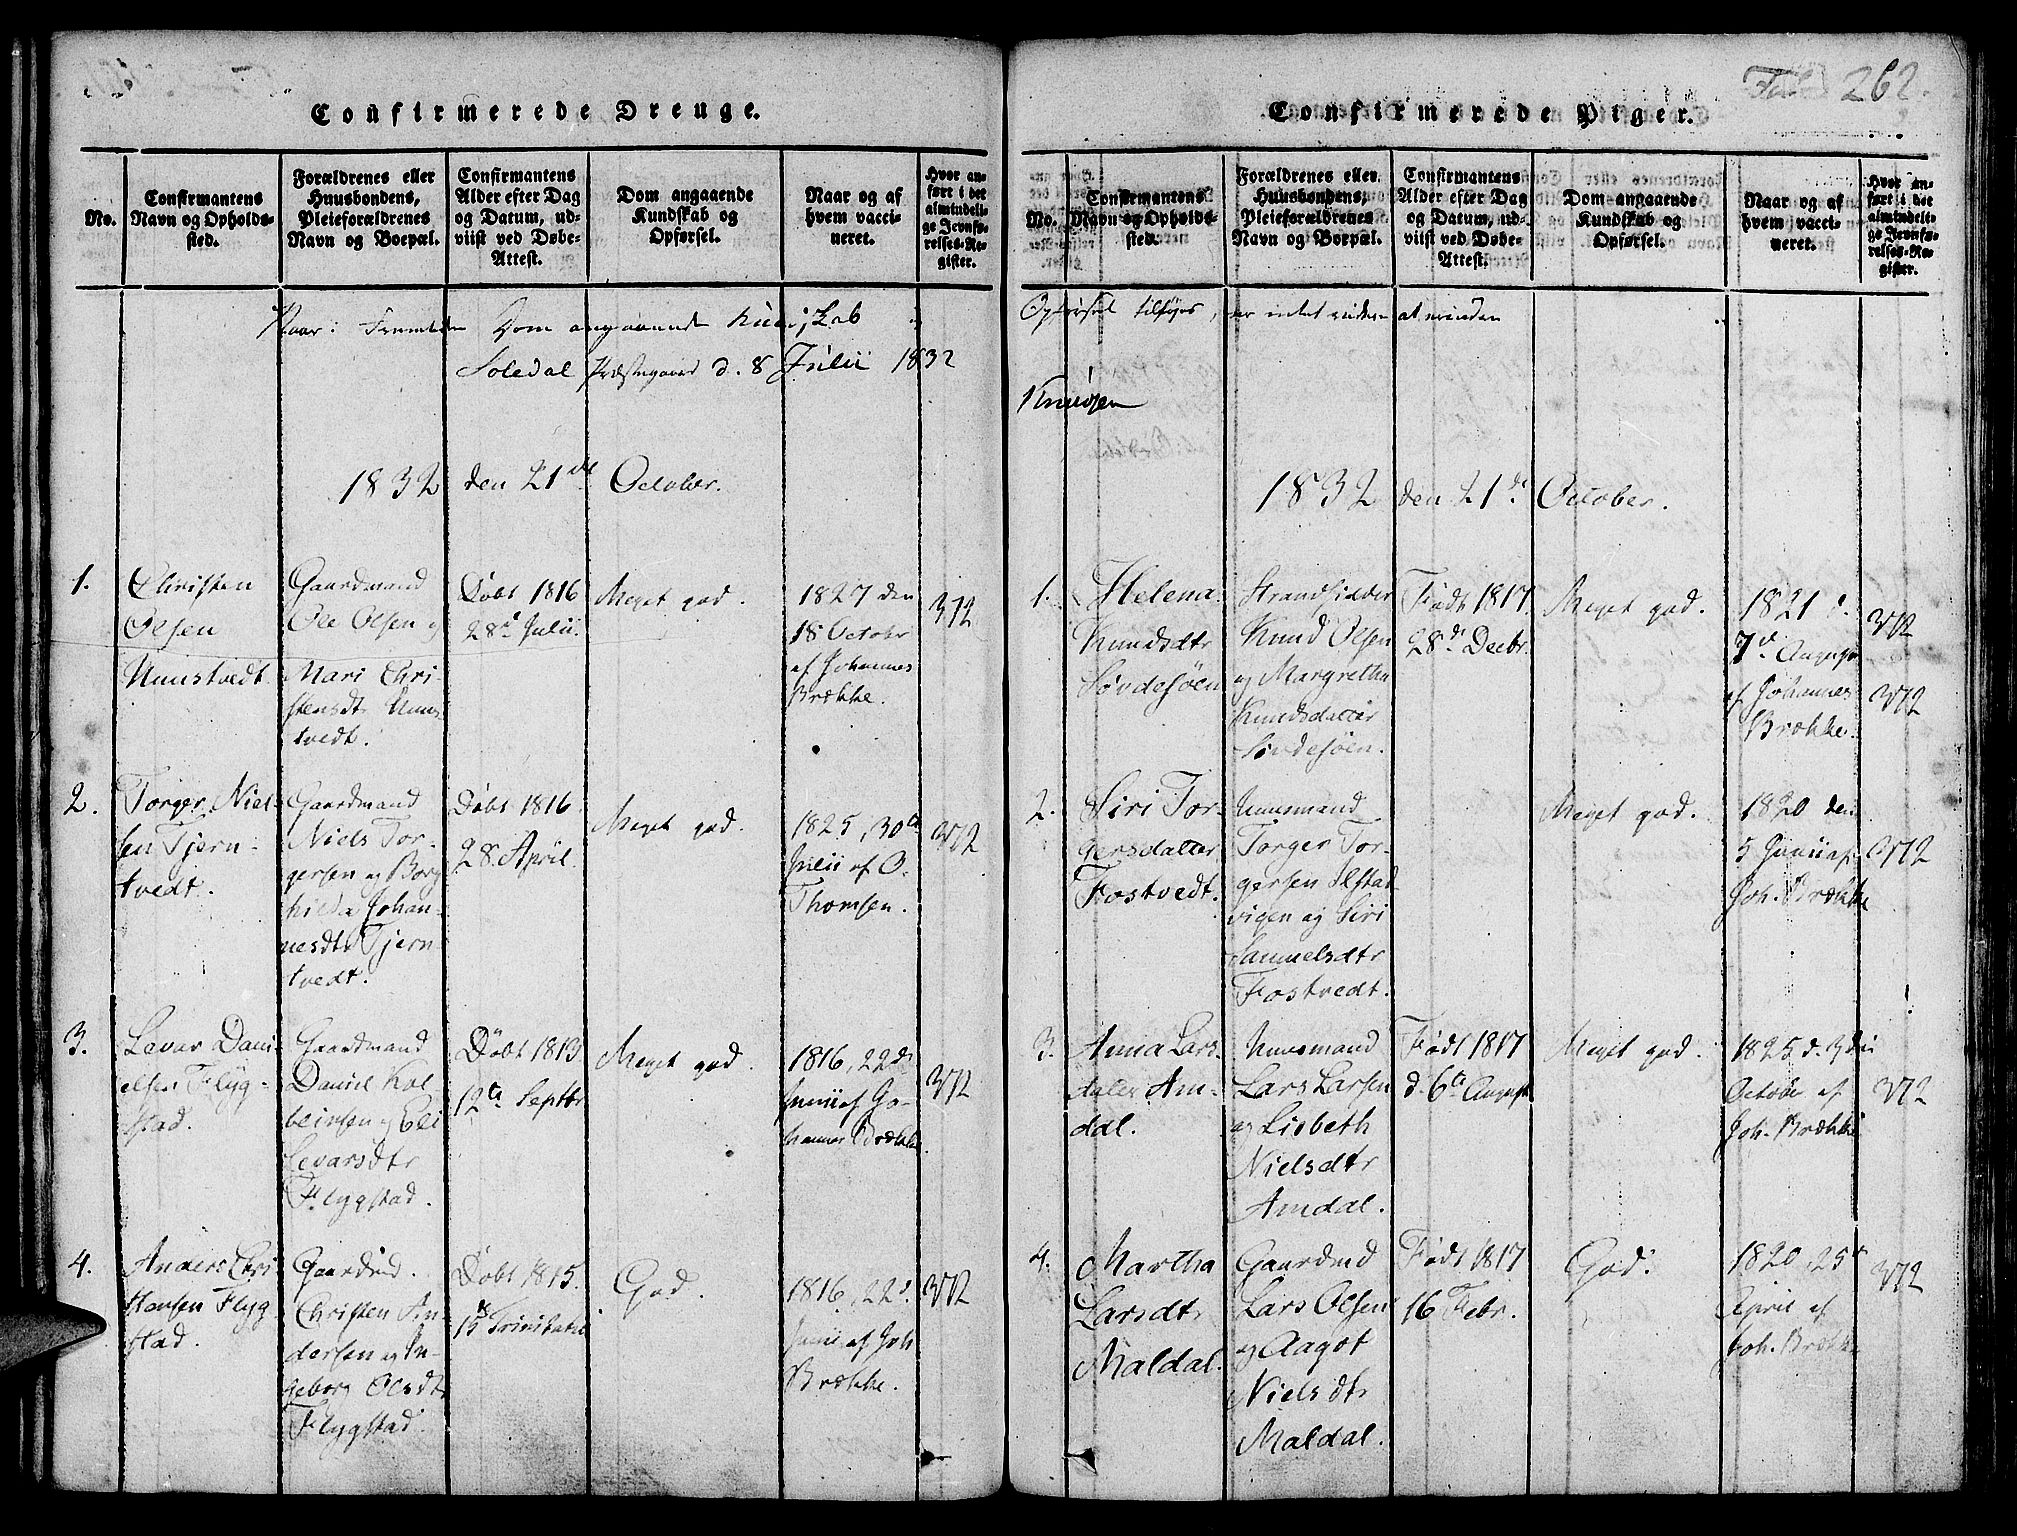 Confirmerede Drenge.
No.
Confirmantens
Navn og Opholds-
sted.
Forældrenes eller
Huusbondens,
Pleieforældrenes
Navn og Boepæl.
Confirmantens
Alder efter Dag
og Datum, ud-
viist ved Døbe-
Attest.
Dom angaaende
Kundskab og
Opførsel.
Naar og af
hvem vacci-
neret.
Hvor an-
ført i det
almindeli-
ge Jevnfø-
relses-Re-
gister.
Naar i Fremtiden Dom angaaende Kundskab og
Soledal Præstegaard d. 8 Julii 1832
1832 den 21de October.
1.
Christen
Olsen
Nuustvedt.
Gaardmand
Ole Olsen og
Mari Chri-
stensdtr Nuus
tvedt.
Døbt 1816
28d Julii.
Meget god.
1827 den
18 Octobr
af Johannes
Brække.
372
2.
Torger Niel-
sen Tjern-
tvedt.
Gaardmand
Niels Tor-
gersen og Borg
hilda Johan-
nesdtr Tjern
tvedt.
Døbt 1816
28. April.
Meget god.
1825, 30te
Julii af O.
Thomsen.
372
3.
Levar Dani-
elsen Flyg-
stad.
Gaardmand
Daniel Kol-
beinsen og Eli
Levarsdtr
Flygstad.
Døbt 1813
12te Septbr
Meget god.
1816, 22d
Junii af Jo-
hannes Brække.
372
4.
Anders Chri
stensen Flyg
stad.
Gaardmd.
Christen An-
dersen og In-
geborg Olsdtr
Flygstad.
Døbt 1815.
15 Trinitatis
God.
1816, 22d
Junii af Joh
Brække.
372
Fol. 262.
Confirmerede Piger.
No.
Confirmantens
Navn og Opholds-
sted.
Forældrenes eller
Huusbondens,
Pleieforældrenes
Navn og Boepæl.
Confirmantens
Alder efter Dag
og Datum, ud-
viist ved Døbe-
Attest.
Dom angaaende
Kundskab og
Opførsel.
Naar og af
hvem vacci-
neret.
Hvor an-
ført i det
almindeli-
ge Jevnfø-
relses-Re-
gister.
Opførsel tilføyes, er intet videre at erindre
Knudsen
1832 den 21de October.
1.
Helena
Knudsdtr
Søvdesøen
Strandsidder
Knud Olsen
og Margretha
Knudsdatter
Søvdesøen.
Født 1817
28d Decbr.
Meget god.
1821 d.
7d August
af Johannes
Brække.
372
372
2.
Siri Tor-
gersdatter
Fostvedt.
Huusmand
Torger Tor-
gersen Ilstad
vigen og Siri
Samuelsdtr
Fostvedt.
Meget god.
1820 den
5 Junii af
Joh. Brække
372
3.
Anna Lars
datter Am-
dal.
Huusmand
Lars Larsen
og Lisbeth
Nielsdtr
Amdal.
Født 1817
d. 6te August
Meget god.
1825 d. 3die
Octobr af
Joh. Brække
372
4.
Martha
Larsdtr
Maldal.
Gaardmd
Lars Olsen
og Aagot
Nielsdtr
Maldal.
Født 1817
16 Febr.
God.
1820, 25d
April af
Joh. Brække
372